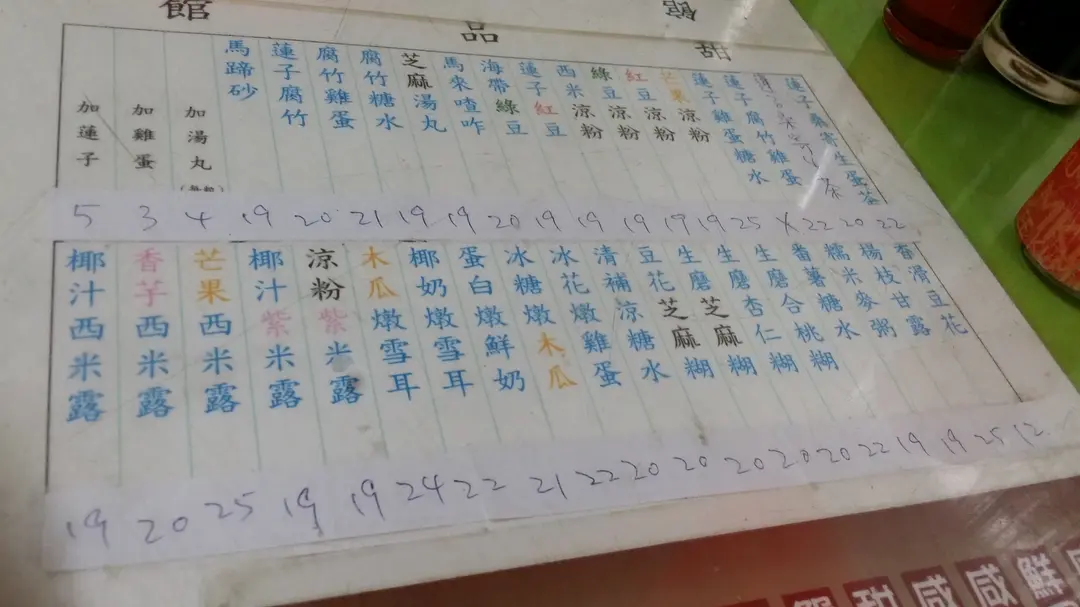 甜品館
館
蓮子桑寄生蛋茶
蓮子腐竹雞蛋
蓮子雞蛋糖水
芒果涼粉
紅豆涼粉
綠豆涼粉
西米涼粉
蓮子紅豆
海帶綠豆
馬來喳咋
芝麻湯丸
腐竹糖水
腐竹雞蛋
蓮子腐竹
馬蹄砂
加湯丸
加雞蛋
加蓮子
5 3 4 19 20 21 19 19 20 19 19 19 19 19 25 X 22 20 22
香滑豆花
楊枝甘露
糯米麥粥
番薯糖水
生磨合桃糊
生磨杏仁糊
生磨芝麻糊
豆花芝麻糊
清補涼糖水
冰花燉雞蛋
冰糖燉木瓜
蛋白燉鮮奶
椰奶燉雪耳
木瓜燉雪耳
涼粉紫米露
椰汁紫米露
芒果西米露
香芋西米露
椰汁西米露
19 20 25 19 19 24 22 21 22 20 20 20 20 20 22 19 19 25 12
甜 咸 咸 鮮